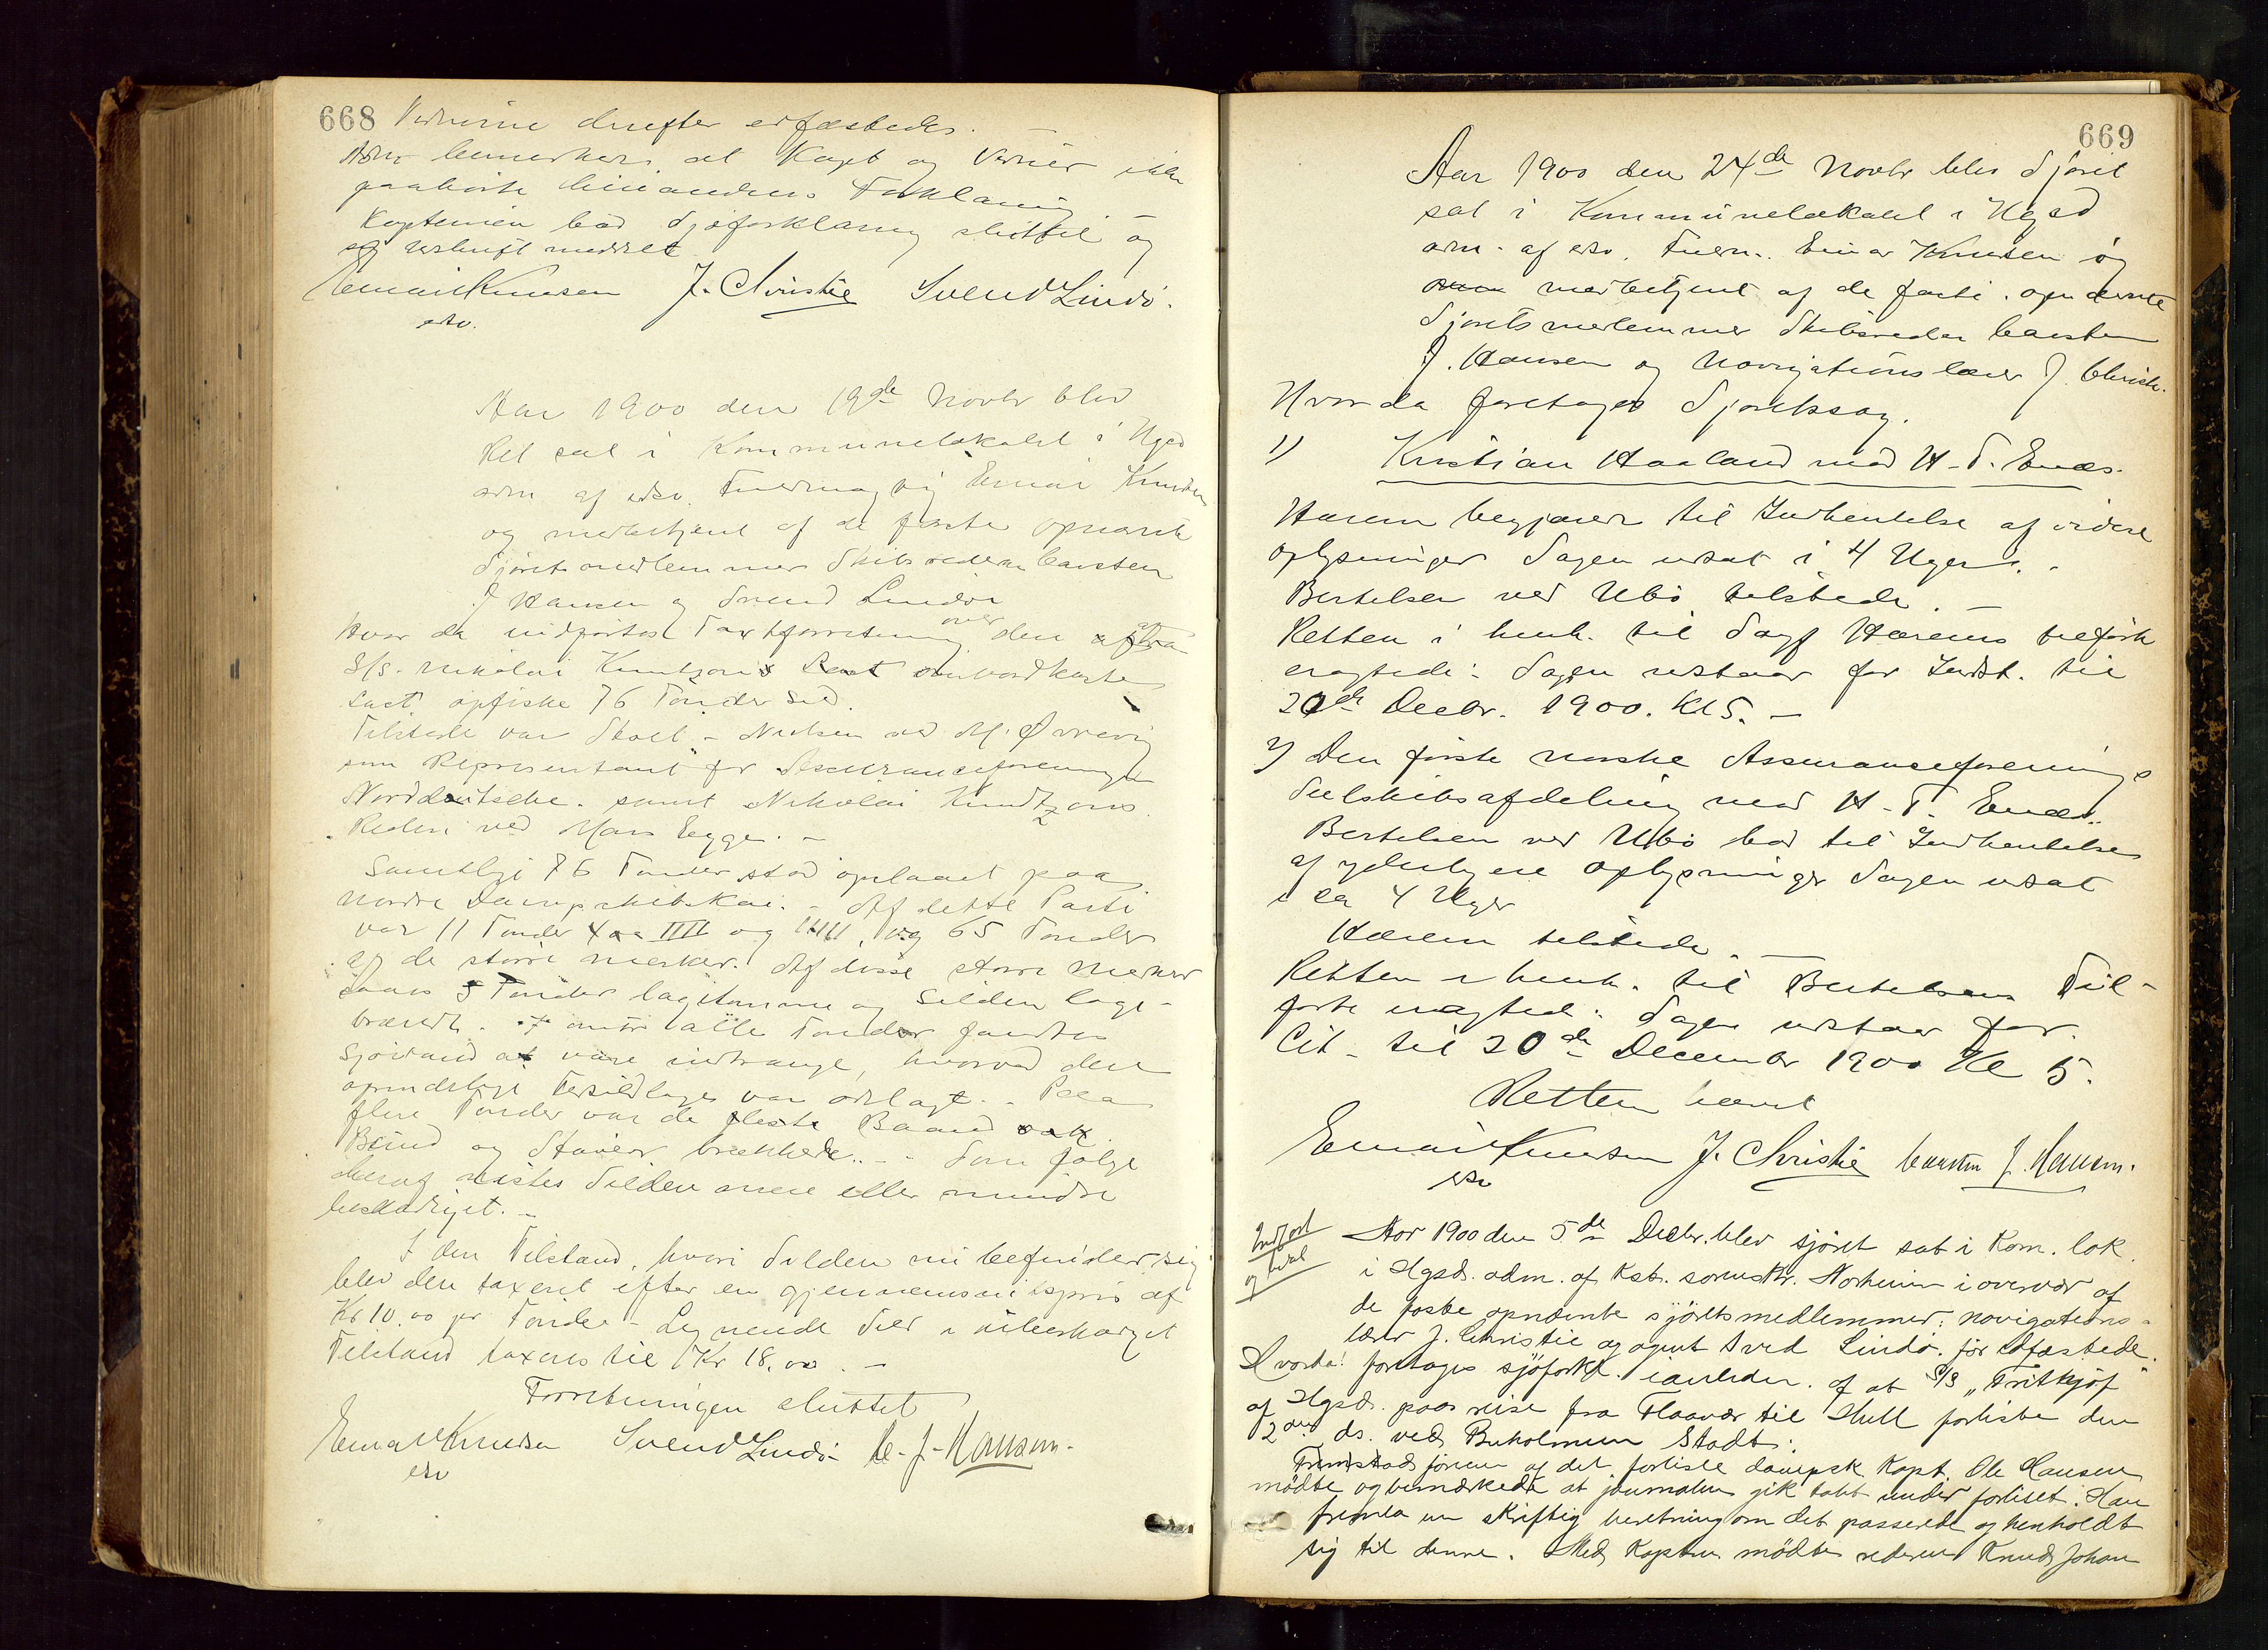 668
Vidnerne derefter edfæstedes. —
Adm bemærker at Kapt og Vidner ikke
paahørte hinandens Forklaring
Kapteinen bad Sjøforklaring sluttet og
sig udskrift meddelt
Einar Knudsen J. Christie Svend Lindö.
edv.
Aar 1900 den 19de Novbr blev
Ret sat i Kommunelokalet i Hgsd
adm af edv. Fuldmægtig Einar Knudsen
og medbetjent af de faste opnævnte
Sjøretsmedlemmer Skibsreder Carsten
J Hansen og Svend Lindøe
Hvor da udførtes Taxtforretning over den fra
S/S. Nikolai Knudtzons Last overbordkaste
samt opfiske 76 Tønder Sild.
Tilstede var Skoel-Nielsen ved M. Ørevig
som Repræsentant for Assuranceforeningen
Norddeutsche. samt Nikolai Knudtzons
Rederi ved Mons Egge. —
Samtlige 76 Tønder stod oplagt paa
Nordre Dampskibskai. – Af dette Parti
var 11 Tønder 4 a IIII og IIIII, og 65 Tønder
af de større mærker. Af disse større mærker
5 Tønder lagetomme og Silden lage-
. I alle Tønder fandtes
Sjøvand at være indtrængt, hvorved den
oprindelige Tersildlage var ødelagt. – Paa
flere Tønder var de fleste Baand
Bund og Staver brækkede. – Som følge
deraf Silden mere eller mindre
beskadiget. –
I den Tilstand, hvori Silden nu befinder sig
blev den taxeret efter en gjennemsnitspris af
Kr 10.00 pr Tønde – Lignende Sild i ubeskadiget
Tilstand taxeres til Kr 18.00. —
Forretningen sluttet
Einar Knudsen Svend Lindö C. J. Hansen.
edv
669
Aar 1900 den 24de Novbr blev Sjøret
sat i Kommunelokalet i Hgsd
adm. af edv. Fuldm. Einar Knudsen og
medbetjent af de faste opnævnte
Sjøretsmedlemmer Skibsreder Carsten
J. Hansen og Navigationslærer J. Christie.
Hvor da foretages Sjøretssag.
1) Kristian Haaland mod H. T. Enæs.
Hærem begjærer til Indhentelse af videre
oplysninger Sagen udsat i 4 Uger. –
Bertelsen ved Ubø tilstede. —
Retten i henh. til Sagf Hærems tilførte
eragtede: Sagen udstaar for Indst. til
20de Decbr. 1900. Kl 5. –
2) Den første norske Assuranceforenings
Seilskibsafdeling mod H. T. Enæs.
Bertelsen ved Ubø bad til Indhentelse
af yderligere oplysninger Sagen udsat
i ca 4 Uger
Hærem tilstede. —
Retten i henh. til Bertelsens Til-
førte eragted: Sagen udstaar for
Cit. til 20de December 1900 Kl 5.
Retten hævet
Einar Knudsen J. Christie Carsten J. Hansen.
edv
Indført
og betal
Aar 1900 den 5de Decbr. blev sjøret sat i Kom. lok.
i Hgsd. adm. af Kst. sorenskr. Norheim i overvær af
de faste opnævnte sjøretsmedlemmer: navigations-
lærer J. Christie og agent Svend Lindø. før edfæstede.
Hvorda! foretages sjøforkl. i anledn. af at S/S "Fritkjof"
af Hgsd. paa reise fra Flaavær til Hull forliste den
2den ds. ved Buholmen Stadt:
Fremstod føreren af det forliste dampsk Kapt. Ole Hansen
mødte og bemærkede at journalen gik tabt under forliset. Han
fremla en skriftlig beretning om det passerede og henholdt
sig til denne. Med Kaptein mødte rederen Knud Johan